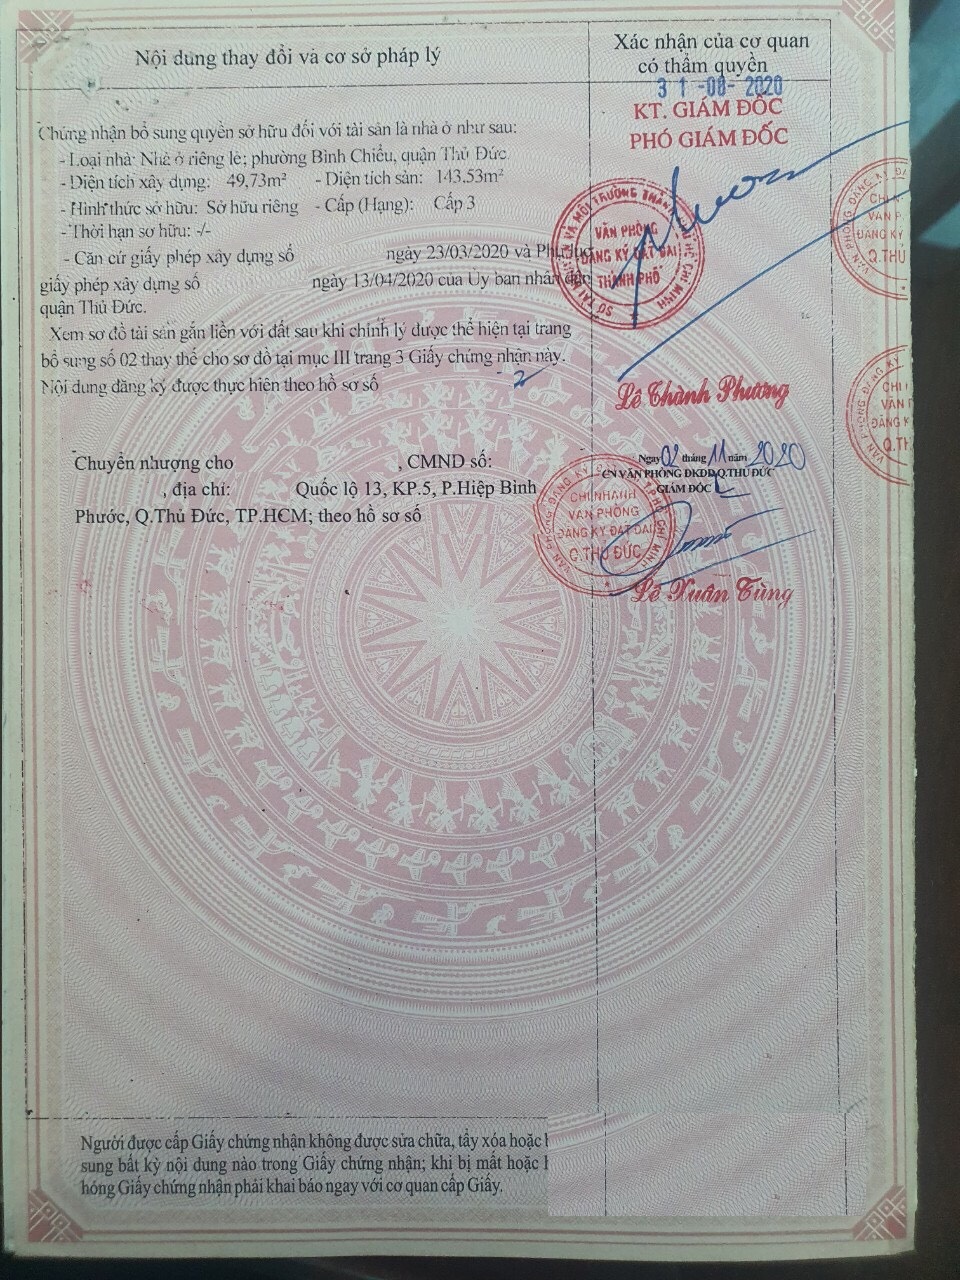 Nội dung thay đổi và cơ sở pháp lý
Xác nhận của cơ quan
có thẩm quyền
31 -08- 2020
KT. GIÁM ĐỐC
PHÓ GIÁM ĐỐC
Chứng nhận bổ sung quyền sở hữu đối với tài sản là nhà ở như sau:
- Loại nhà: Nhà ở riêng lẻ; phường Bình Chiểu, quận Thủ Đức.
- Diện tích xây dựng: 49,73m² - Diện tích sàn: 143.53m²
- Hình thức sở hữu: Sở hữu riêng - Cấp (Hạng): Cấp 3
- Thời hạn sở hữu: -/-
- Căn cứ giấy phép xây dựng số ngày 23/03/2020 và Phụ lục
giấy phép xây dựng số ngày 13/04/2020 của Ủy ban nhân dân
quận Thủ Đức.
Xem sơ đồ tài sản gắn liền với đất sau khi chỉnh lý được thể hiện tại trang
bổ sung số 02 thay thế cho sơ đồ tại mục III trang 3 Giấy chứng nhận này.
Nội dung đăng ký được thực hiện theo hồ sơ số
VĂN PHÒNG
ĐĂNG KÝ ĐẤT ĐAI
THÀNH PHỐ
Lê Thành Phương
Chuyển nhượng cho , CMND số:
, địa chỉ: Quốc lộ 13, KP.5, P.Hiệp Bình
Phước, Q.Thủ Đức, TP.HCM; theo hồ sơ số
Ngày 02 tháng 11 năm 2020
CN VĂN PHÒNG ĐKĐĐ Q.THỦ ĐỨC
GIÁM ĐỐC
CHI NHÁNH
VĂN PHÒNG
ĐĂNG KÝ ĐẤT ĐAI
Q.THỦ ĐỨC
Lê Xuân Tùng
Người được cấp Giấy chứng nhận không được sửa chữa, tẩy xóa hoặc
sung bất kỳ nội dung nào trong Giấy chứng nhận; khi bị mất hoặc
hỏng Giấy chứng nhận phải khai báo ngay với cơ quan cấp Giấy.